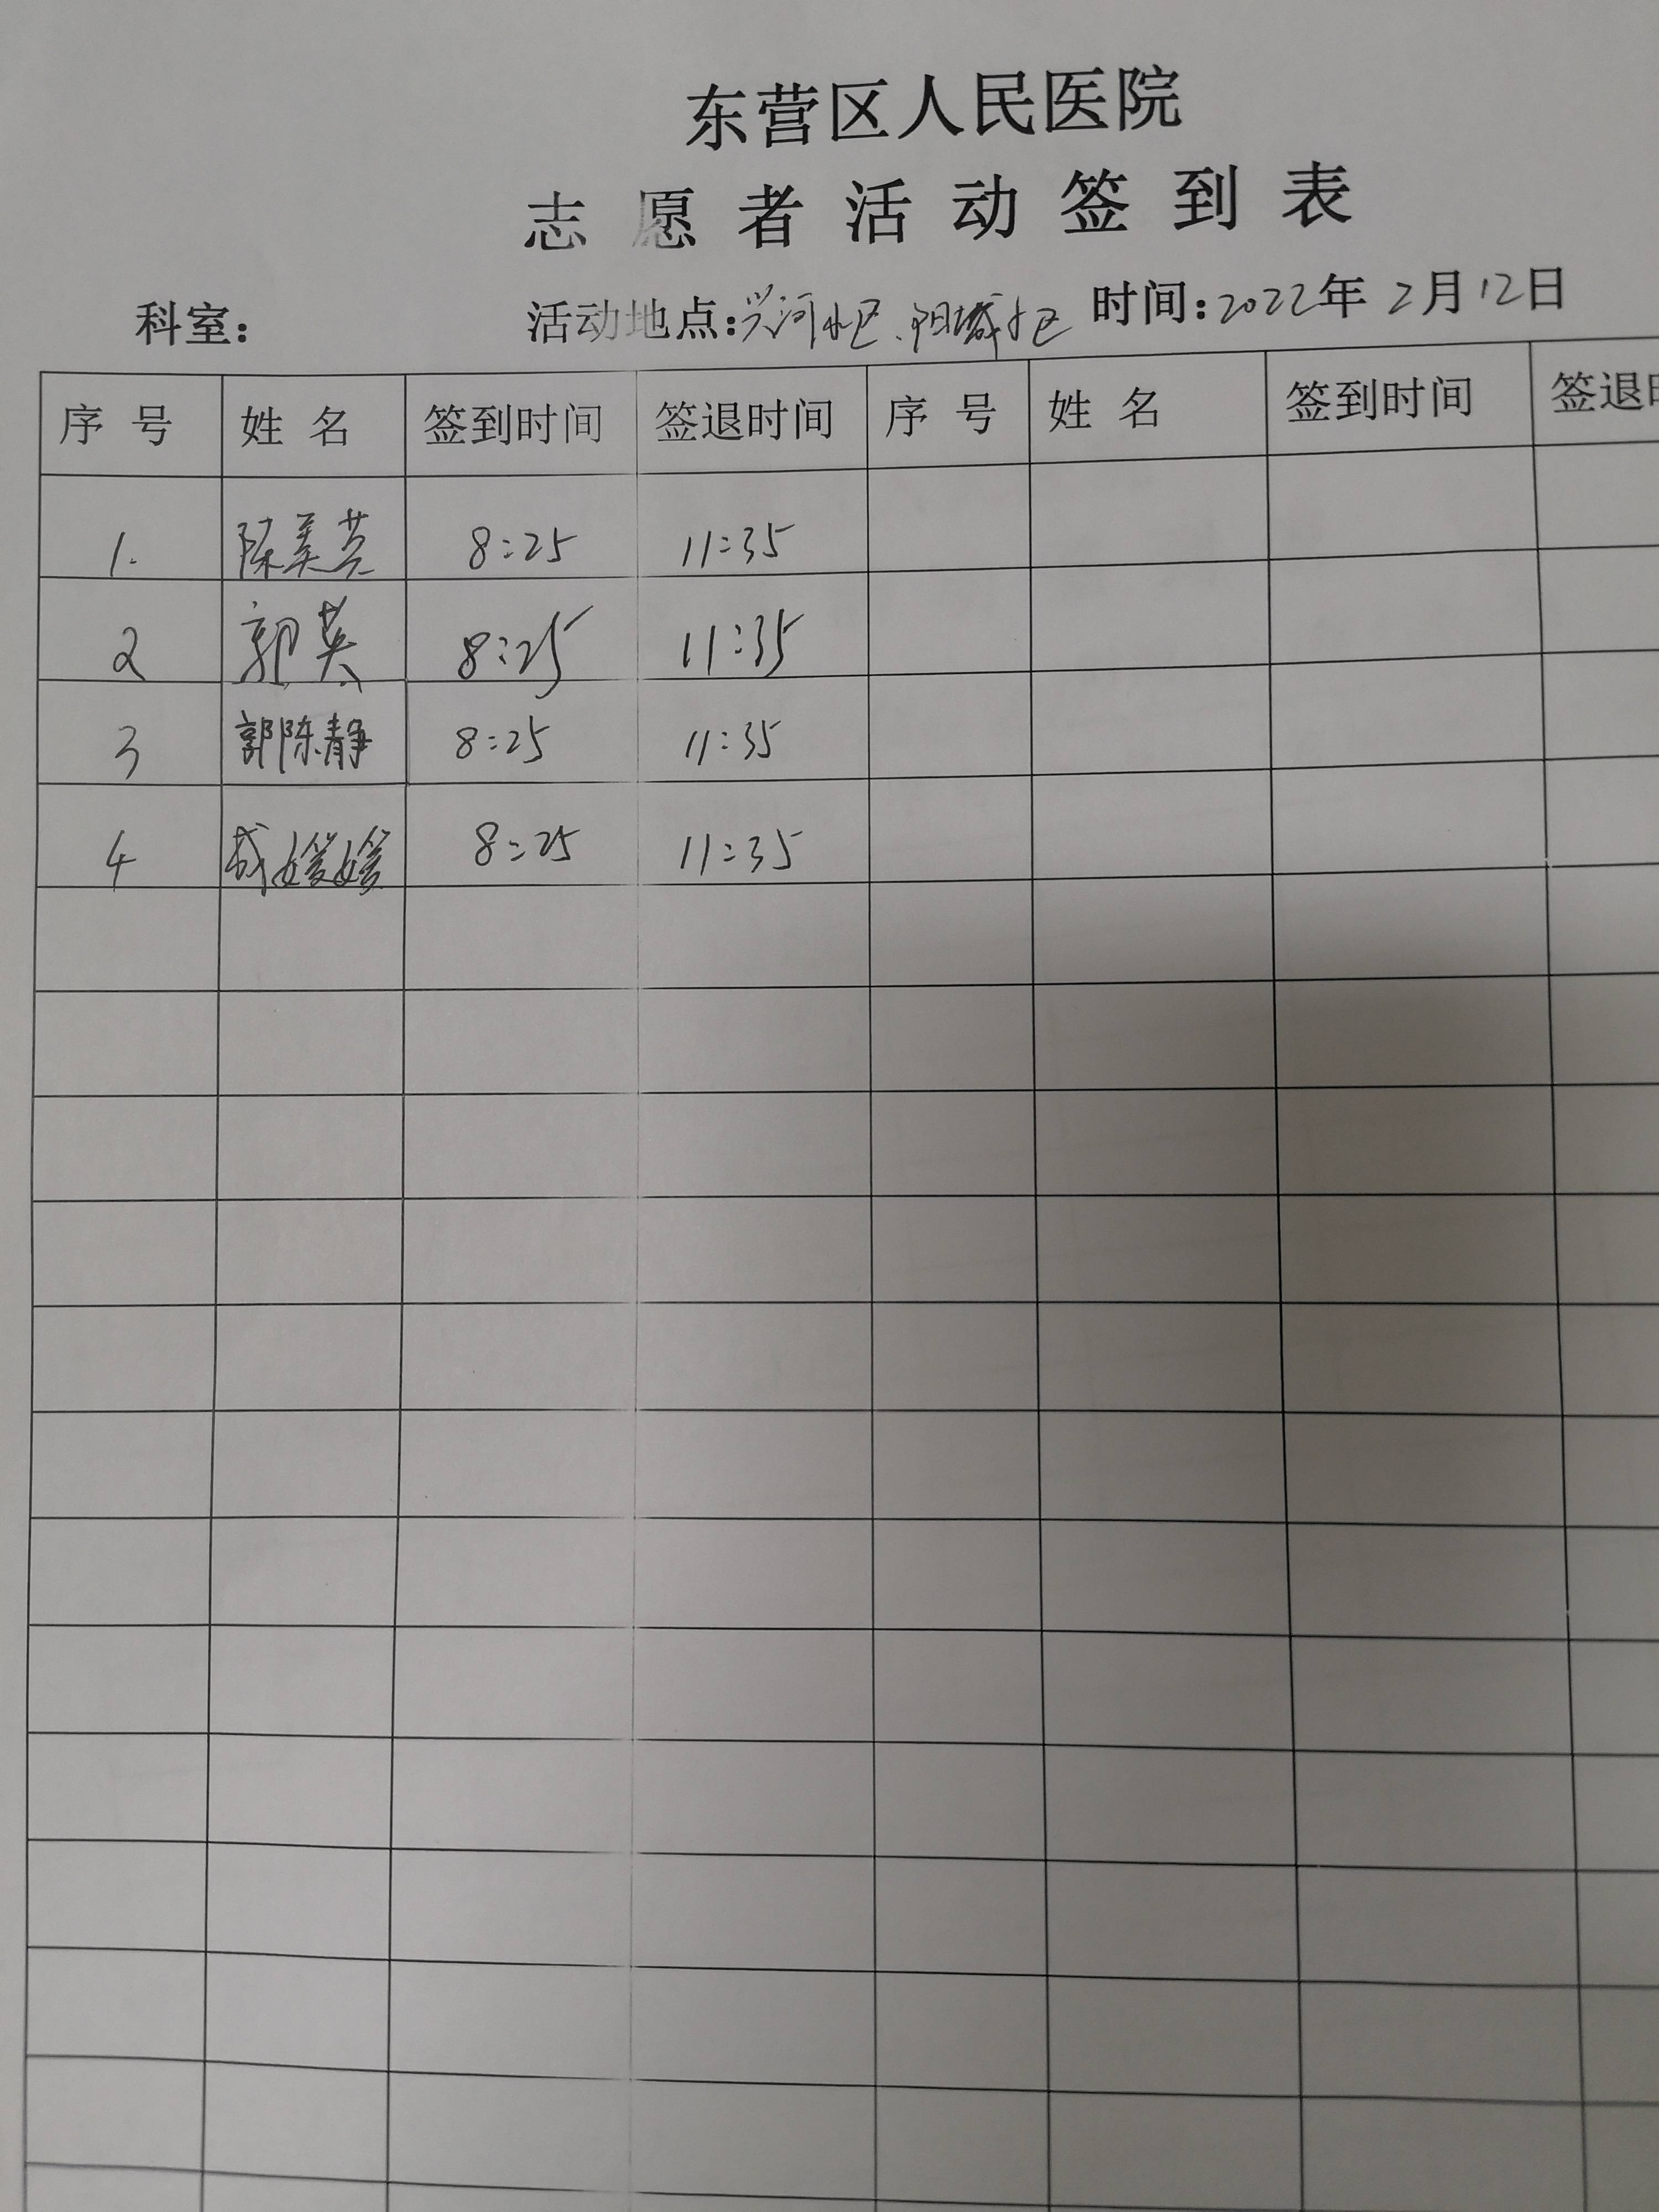 东营区人民医院
志愿者活动签到表
科室: 活动地点:兴河小区、阳城小区 时间:2022年2月12日
序号 姓名 签到时间 签退时间 序号 姓名 签到时间 签退
1. 陈美芸 8:25 11:35
2 郭英 8:25 11:35
3 郭陈静 8:25 11:35
4 成媛媛 8:25 11:35